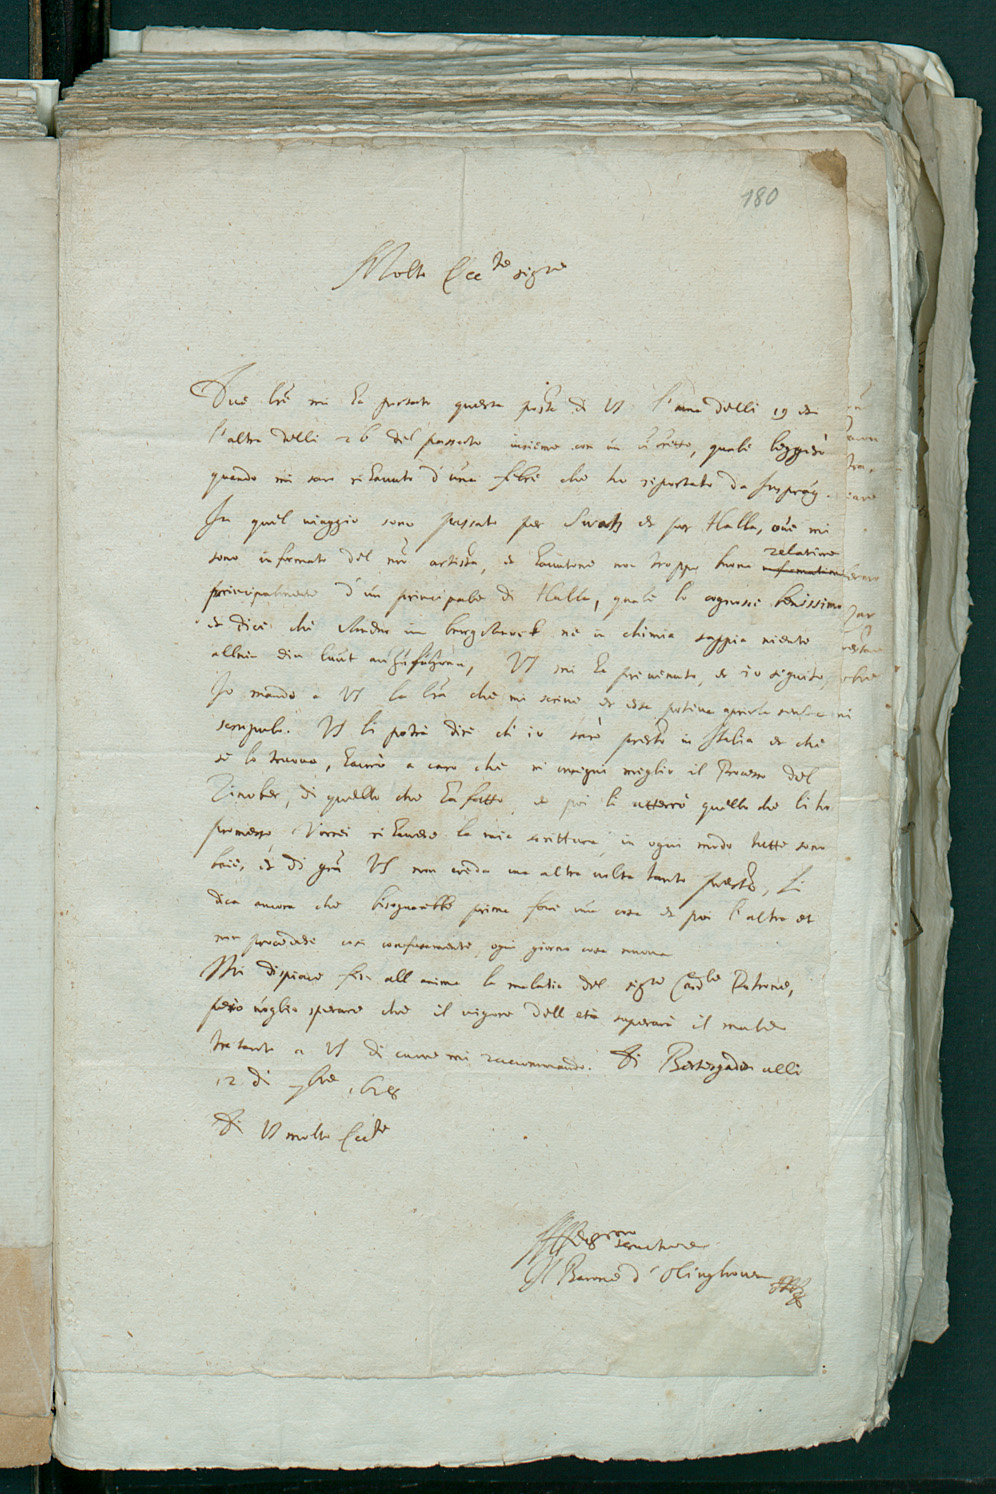 180
Molto Ecc.te sig.re
Due l're mi ha portato questa posta di VS l'una delli 19 et
l'altra delli 26 del passato insieme con un, quali leggerò
quando mi saro rihavuto d'una febre che ho riportato da Insprug.
In quel viaggio sono passato per Swatz et per Halla, ove mi
sono informato del n'ro artista, et havutone non troppo buona relatione
principalmente d'un principale di Halla, quale lo cognosce benissimo
et dice che ne in chimia sappia niente
allein die leut VS mi ha prevenuto, et io seguito,
Io mando a VS la l'ra che mi scrive et essa potrà aprirla senza
scrupulo. VS li potrà dire ch'io sarò presto in Italia et che
se lo trovo, haverò a caro che m'insegni meglio il Processo del
Zinober, di quello che ha fatto, et poi li atterrò quello che li ho
promesso. Vorrei rihavere la mia scrittura, in ogni modo tutte sono
baie, et di gra VS non creda una altra volta tanto presto, Li
dica ancora che bisognarebbe prima fare una cosa et poi l'altra et
non procedere cosi confusamente, ogni giorno cosa nuova
Mi dispiace fin all anima la malatia del sig.re Card.le Patrone,
però voglio sperare che il vigore dell età superarà il male
tra tanto a VS di cuore mi raccommando. Di alli
12 di 7bre 1628
Di VS molto Ecc.te
Aff.mo servitore
Il Barone d'